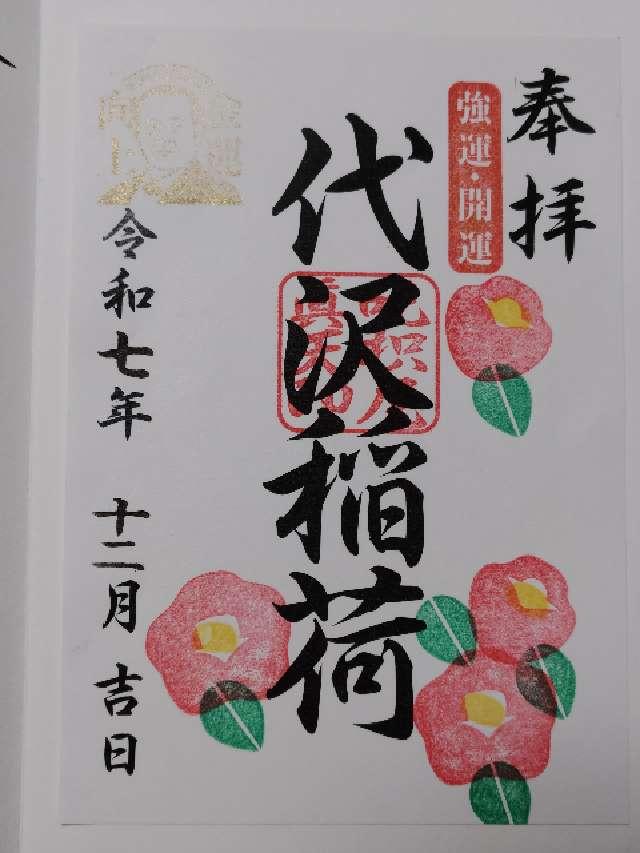 奉拝
強運・開運
代沢稲荷
令和七年 十二月 吉日